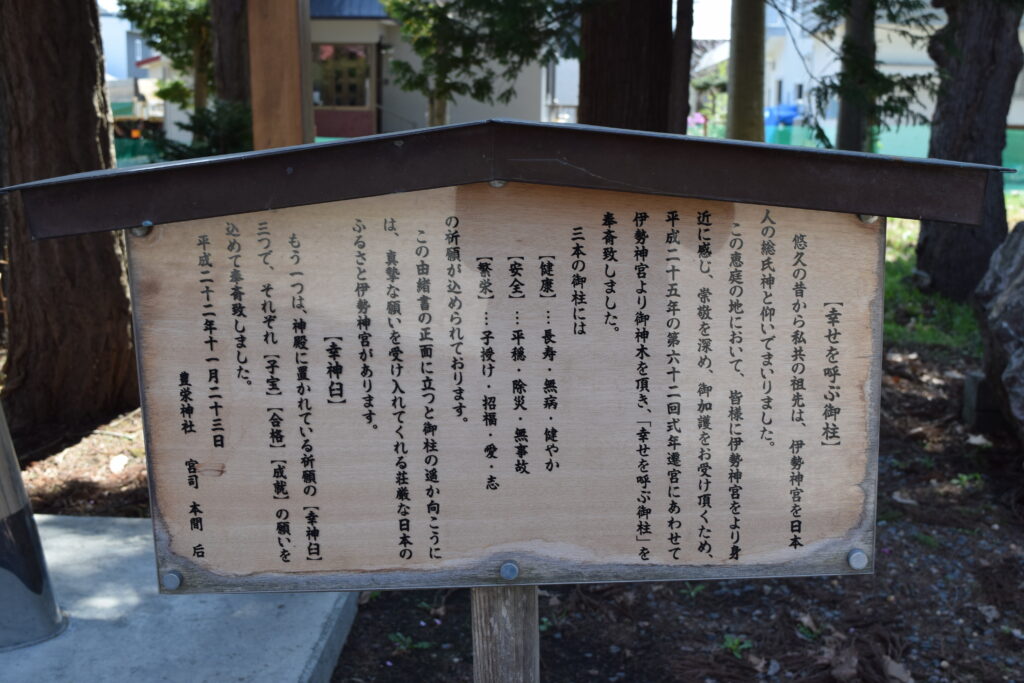 【幸せを呼ぶ御柱】
悠久の昔から私共の祖先は、伊勢神宮を日本
人の総氏神と仰いでまいりました。
この恵庭の地において、皆様に伊勢神宮をより身
近に感じ、崇敬を深め、御加護をお受け頂くため、
平成二十五年の第六十二回式年遷宮にあわせて
伊勢神宮より御神木を頂き、「幸せを呼ぶ御柱」を
奉斎致しました。
三本の御柱には
【健康】…長寿・無病・健やか
【安全】…平穏・除災・無事故
【繁栄】…子授け・招福・愛・志
の祈願が込められております。
この由緒書の正面に立つと御柱の遥か向こうに
は、真摯な願いを受け入れてくれる荘厳な日本の
ふるさと伊勢神宮があります。
【幸神臼】
もう一つは、神殿に置かれている祈願の【幸神臼】
三つで、それぞれ【子宝】【合格】【成就】の願いを
込めて奉斎致しました。
平成二十二年十一月二十三日
豊栄神社 宮司 本間 后